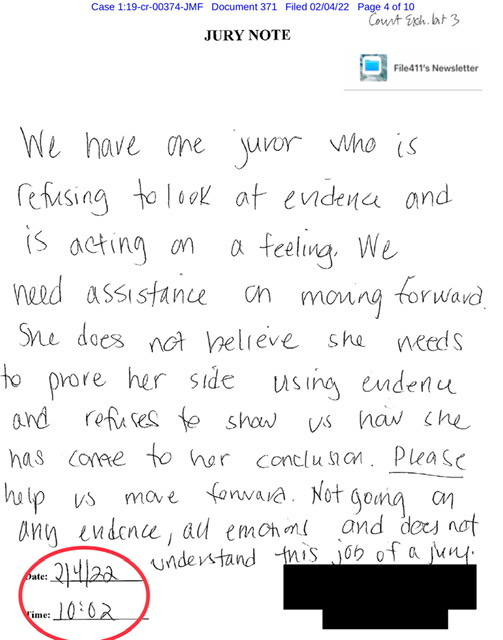 Case 1:19-cr-00374-JMF Document 371 Filed 02/04/22 Page 4 of 10
Court Exhibit 3
JURY NOTE
File411's Newsletter
We have one juror who is
refusing to look at evidence and
is acting on a feeling. We
need assistance on moving forward.
She does not believe she needs
to prove her side using evidence
and refuses to show us how she
has come to her conclusion. Please
help us move forward. Not going on
any evidence, all emotions and does not
understand this job of a jury.
Date: 2/4/22
Time: 10:02